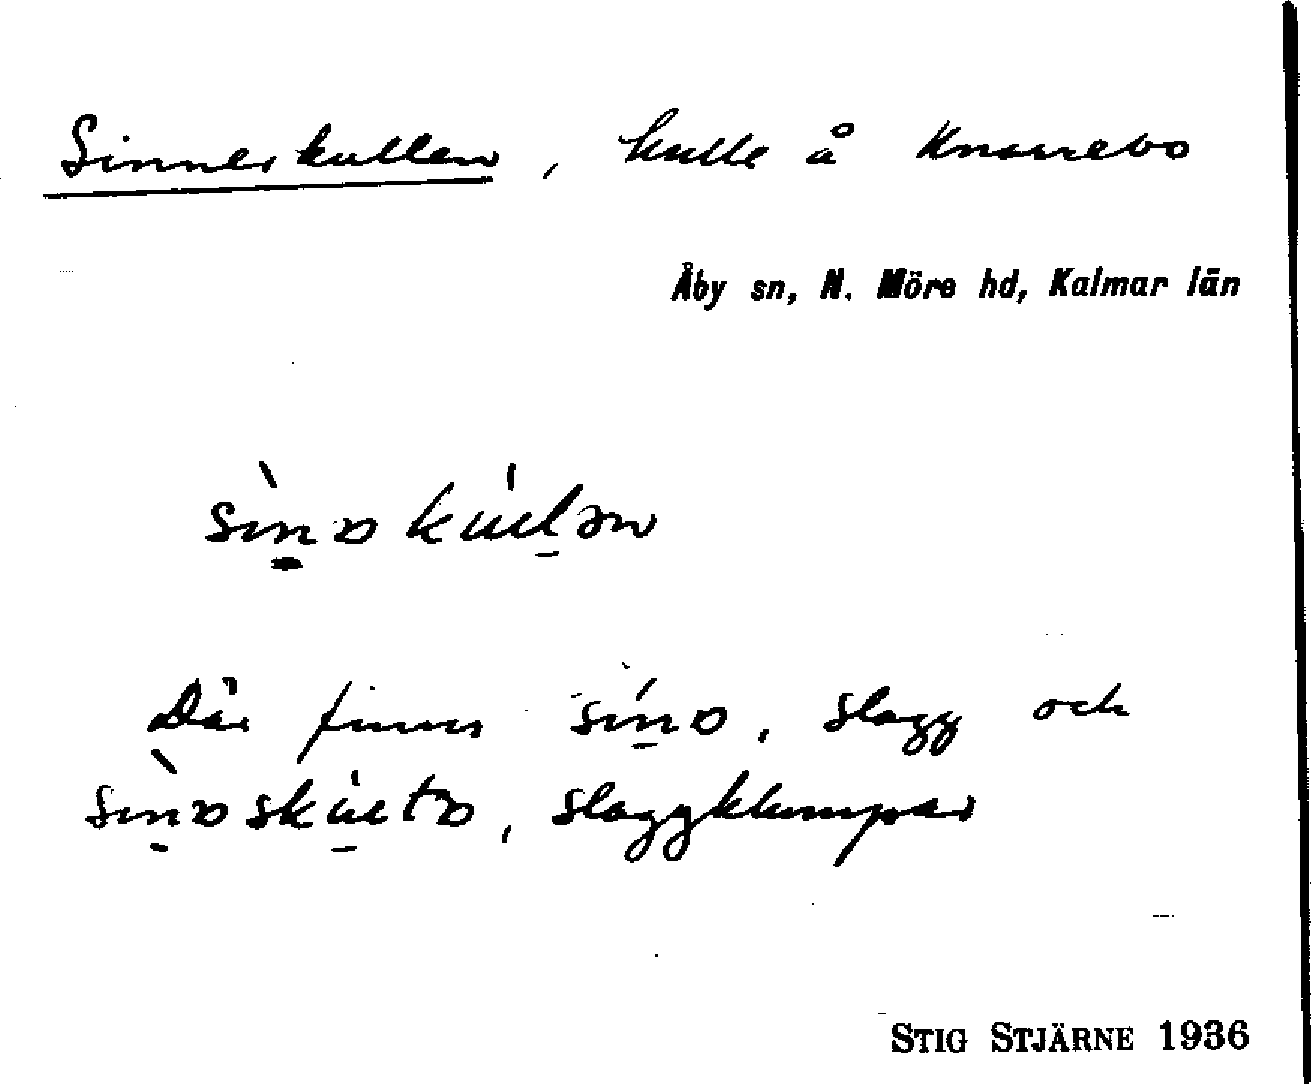 Sinnerkullen, kulle å Knarrebo
Åby sn, N. Möre hd, Kalmar län
Där finns slagg och
slaggklumpar
STIG STJÄRNE 1936